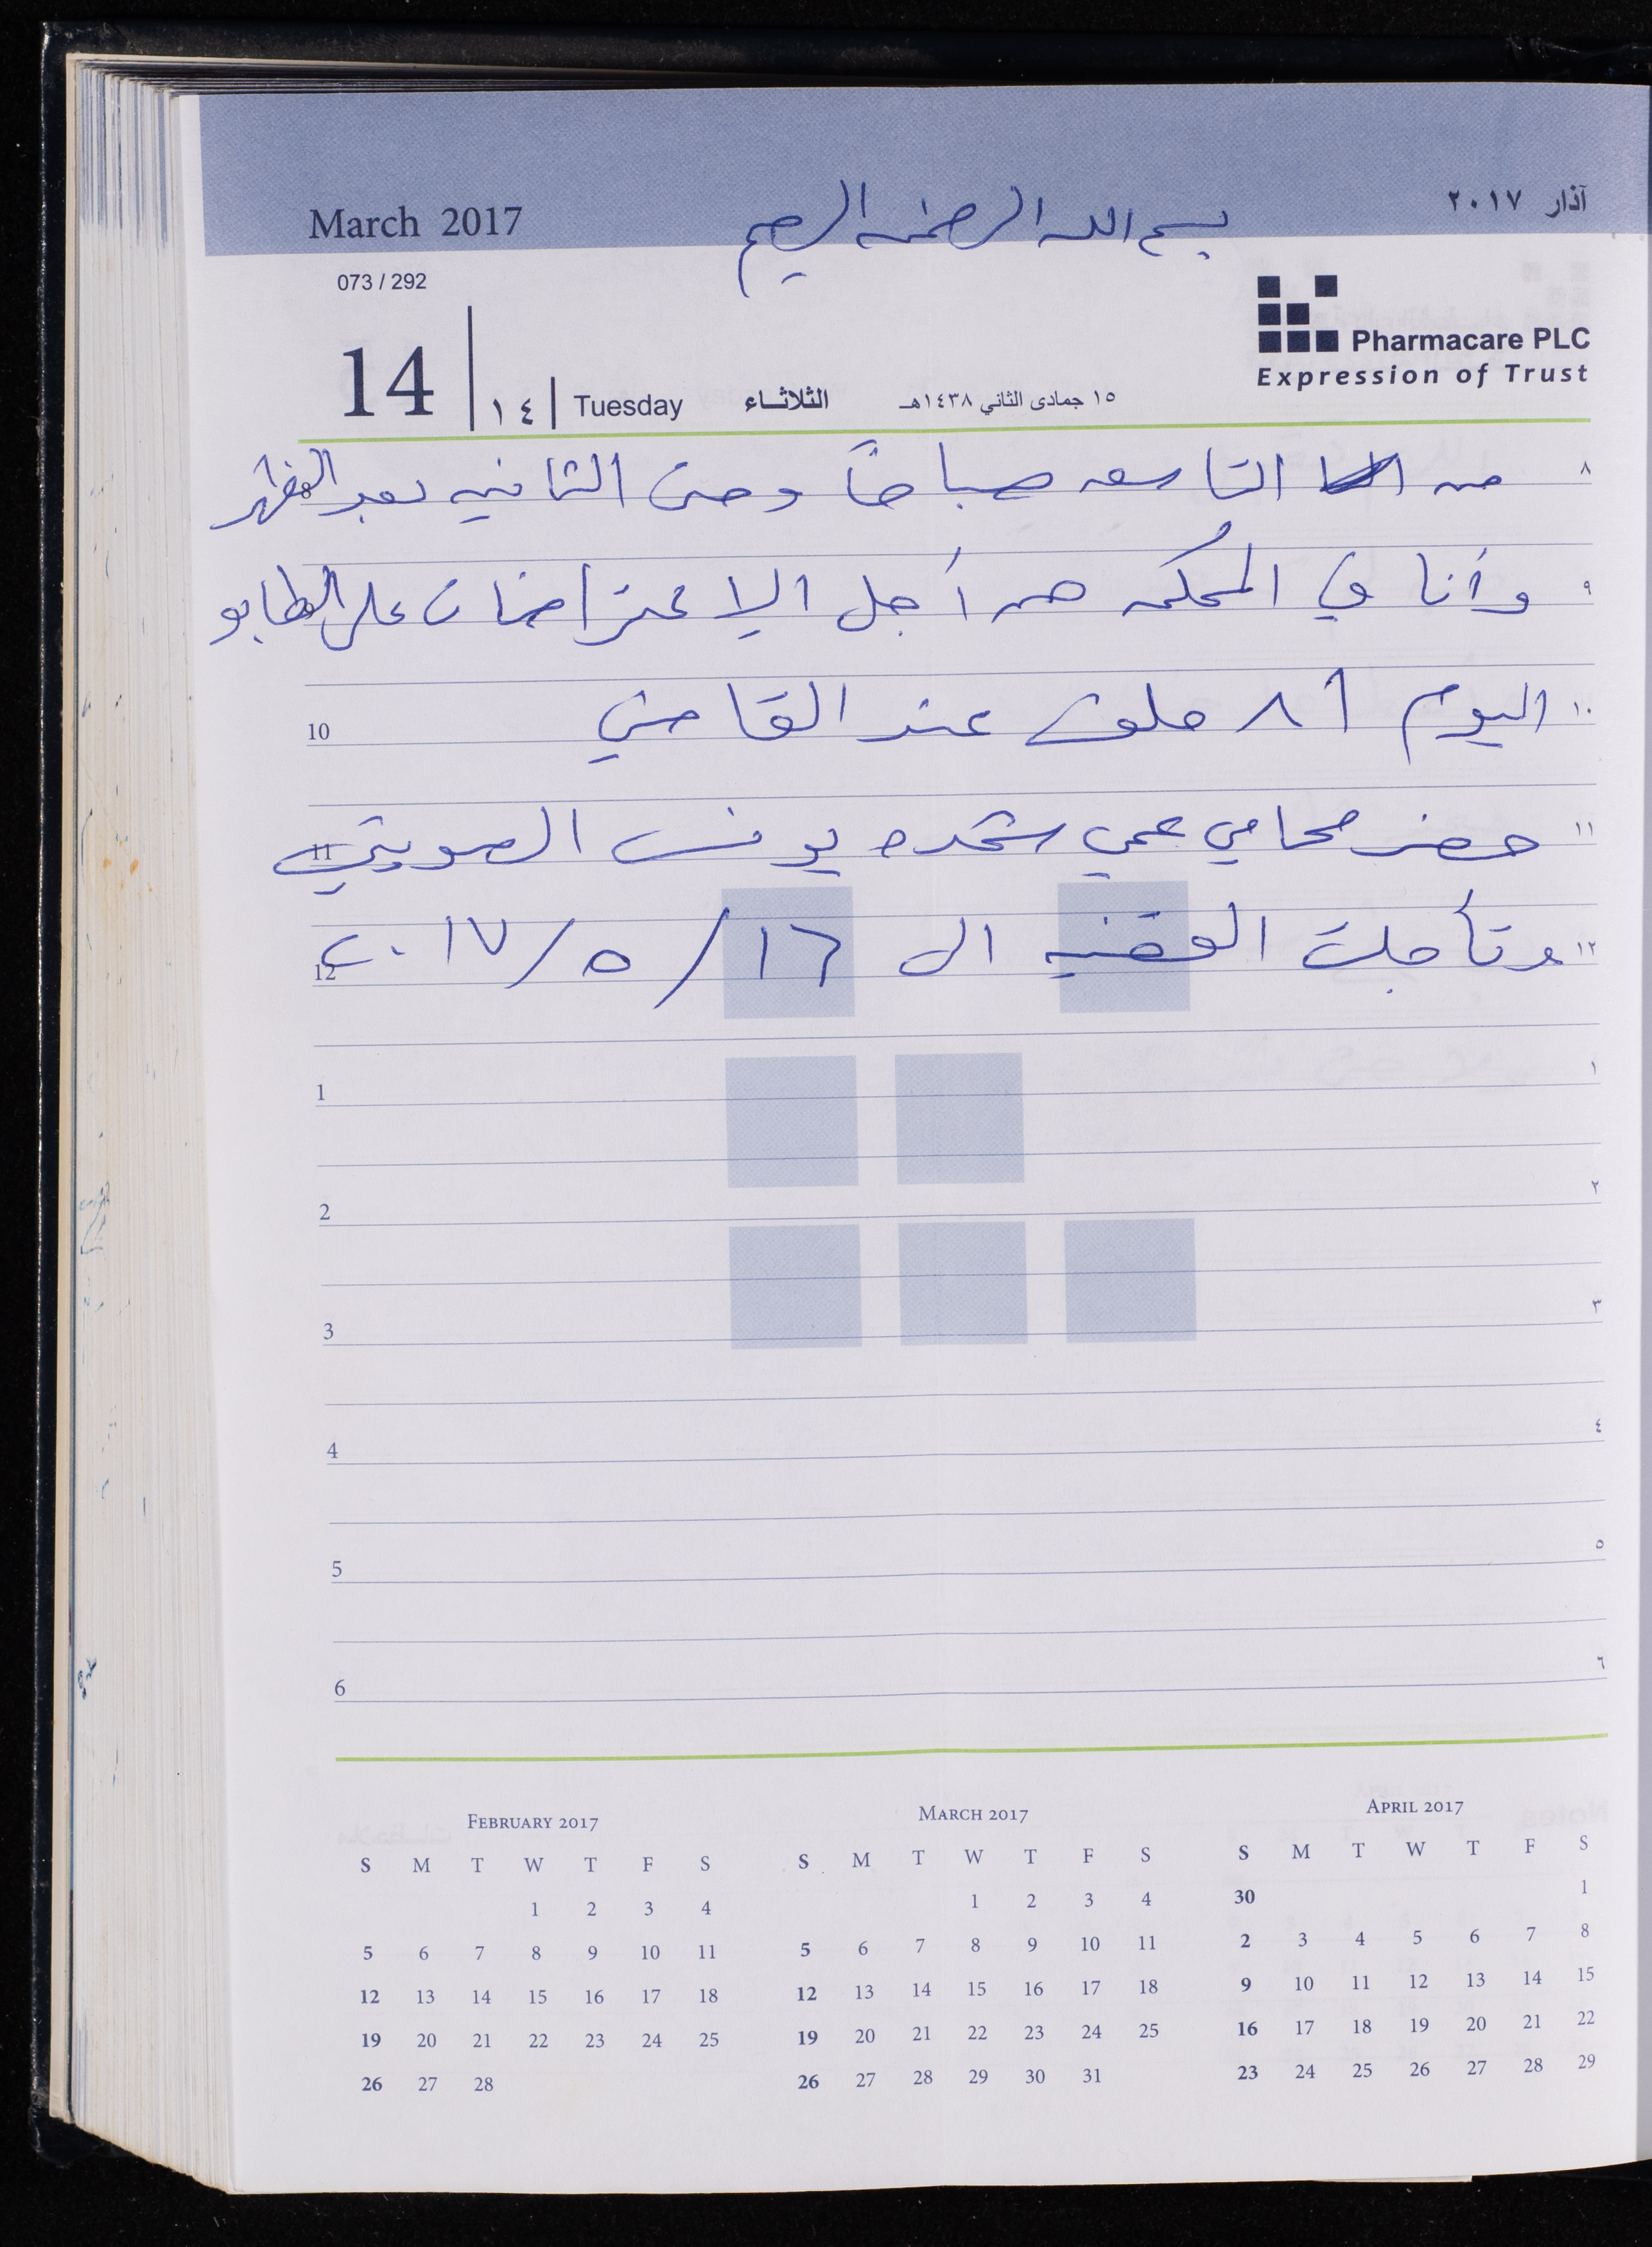 March 2017
بسم الله الرحمن الرحيم
آذار ٢٠١٧
073 / 292
Pharmacare PLC
Expression of Trust
14 ١٤ Tuesday الثلاثاء ١٥ جمادى الثاني ١٤٣٨هـ
٨ من التاسعه صباحاً وحتى الثانيه بعد الظهر 8
٩ وأنا في المحكمه من أجل الإعتراضات على الطابو
١٠ اليوم ٨٦ ملف عند القاضي 10
١١ حضر محامي عمي شحده يونس الصويتي 11
١٢ وتأجلت القضيه الى ١٦/٥/٢٠١٧ 12
1 ١
2 ٢
3 ٣
4 ٤
5 ٥
6 ٦
FEBRUARY 2017
S M T W T F S
1 2 3 4
5 6 7 8 9 10 11
12 13 14 15 16 17 18
19 20 21 22 23 24 25
26 27 28
MARCH 2017
S M T W T F S
1 2 3 4
5 6 7 8 9 10 11
12 13 14 15 16 17 18
19 20 21 22 23 24 25
26 27 28 29 30 31
APRIL 2017
S M T W T F S
30 1
2 3 4 5 6 7 8
9 10 11 12 13 14 15
16 17 18 19 20 21 22
23 24 25 26 27 28 29